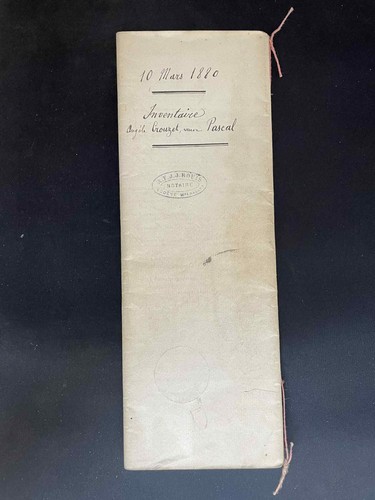 10 Mars 1880
Inventaire
Angèle Crouzet, veuve Pascal
NOTAIRE